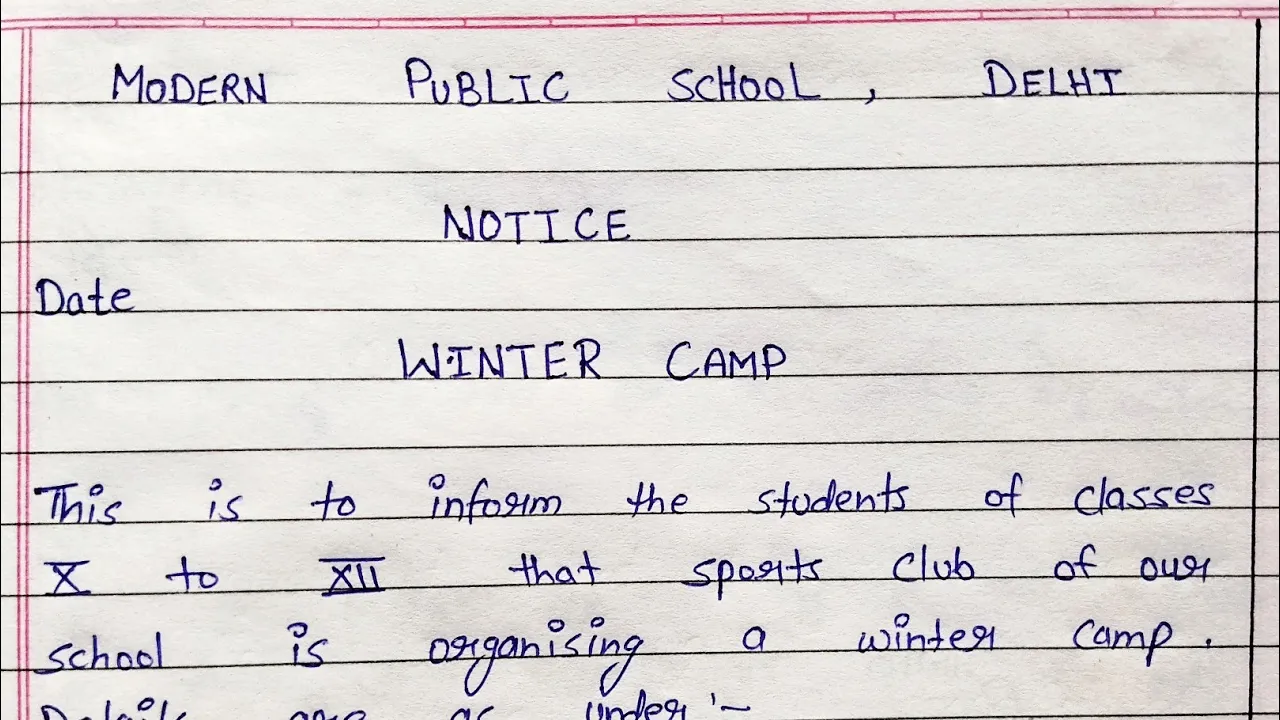 MODERN PUBLIC SCHOOL, DELHI
NOTICE
Date
WINTER CAMP
This is to inform the students of classes
X to XII that sports club of our
school is organising a winter camp.
Details are as under :-